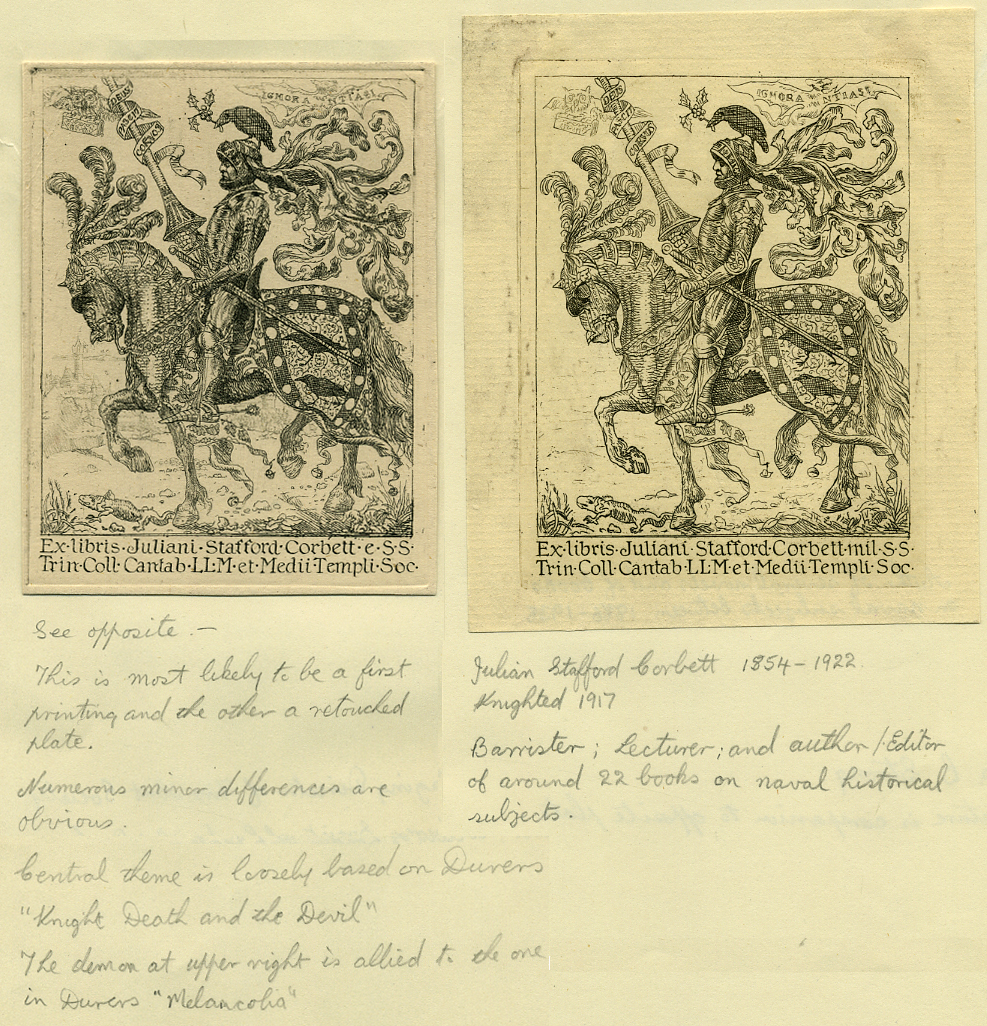 DEUS
PASCIT
CORVOS
IGNORANTIA SI
Ex·libris·Juliani·Stafford·Corbett·e·S·S·
Trin·Coll·Cantab·LLM·et·Medii·Templi·Soc·
See opposite.—
This is most likely to be a first
printing and the other a retouched
plate.
Numerous minor differences are
obvious.
Central theme is loosely based on Durers
"Knight Death and the Devil"
The demon at upper right is allied to the one
in Durers "Melancolia"
DEUS
PASCIT
CORVOS
Ex·libris·Juliani·Stafford·Corbett·mil·S·S·
Trin·Coll·Cantab·LLM·et·Medii·Templi·Soc·
Julian Stafford Corbett 1854–1922.
Knighted 1917
Barrister; Lecturer; and author/Editor
of around 22 books on naval historical
subjects.